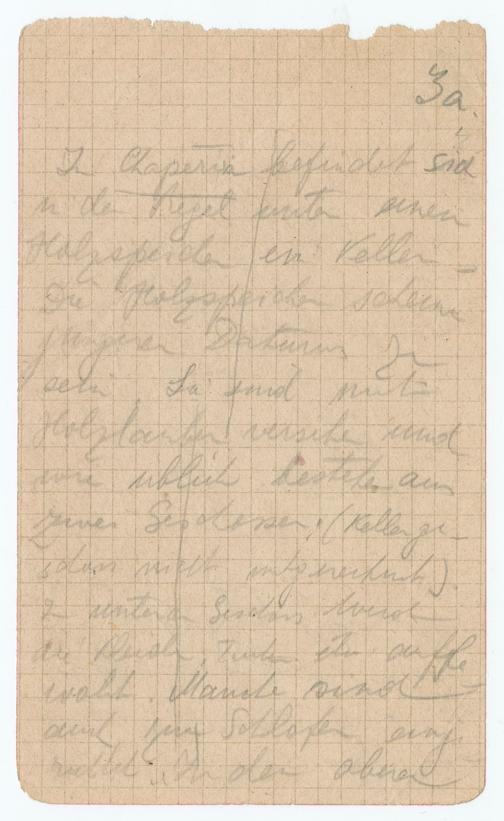 3a.
In Chaperin befindet sich
in der Regel unter einem
Holzspeicher ein Keller.
Die Holzspeicher scheinen
jüngeren Datums zu
sein. Sie sind mit
Holzlauben versehen und
wie üblich bestehen aus
zwei Geschossen. (Kellerge-
schoss nicht mitgerechnet).
Im unteren Geschoss werden
die etc. aufbe-
wahrt. Manche sind
auch zum Schlafen einge-
richtet. In den oberen